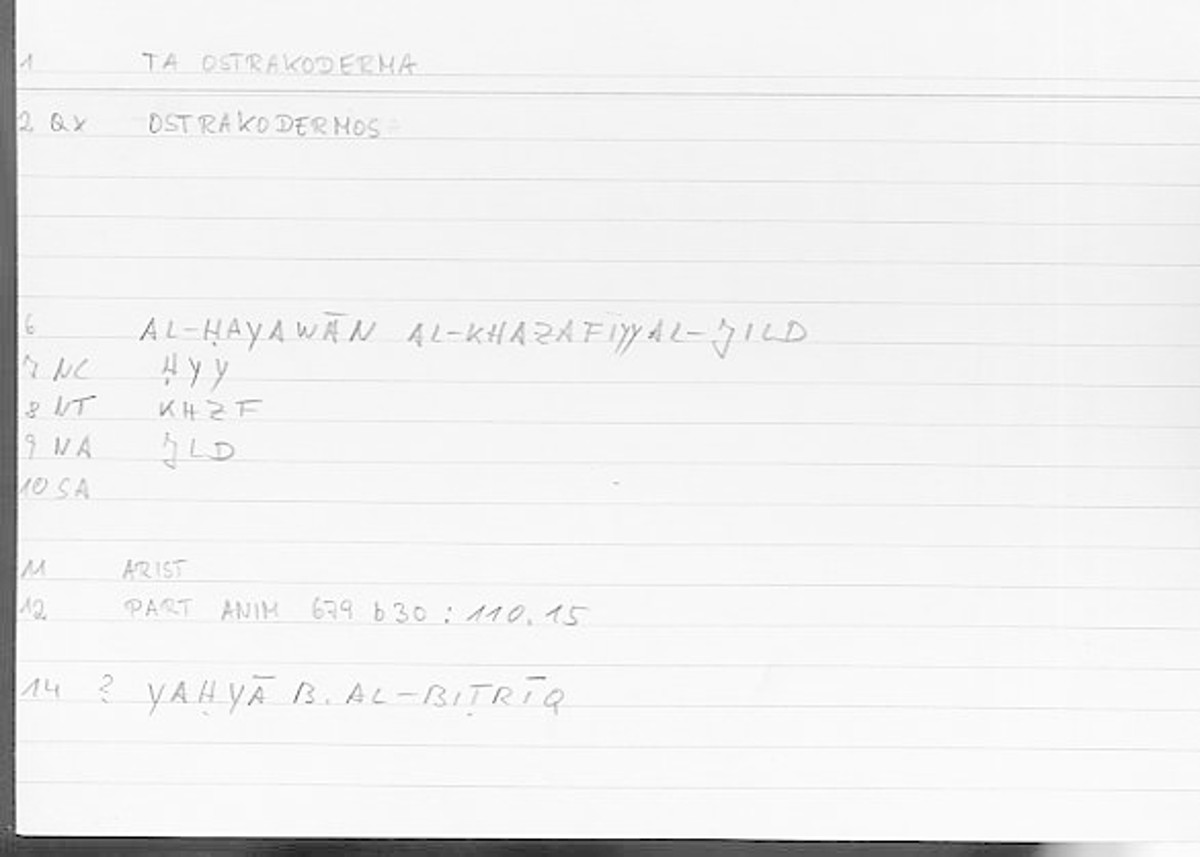 1 TA OSTRAKODERMA
2 QX OSTRAKODERMOS
6 AL-ḤAYAWĀN AL-KHAZAFIYY AL-JILD
7 NC ḤYY
8 NT KHZF
9 NA JLD
10 SA
11 ARIST
12 PART ANIM 679 b30 : 110.15
14 ? YAḤYĀ B. AL-BIṬRĪQ